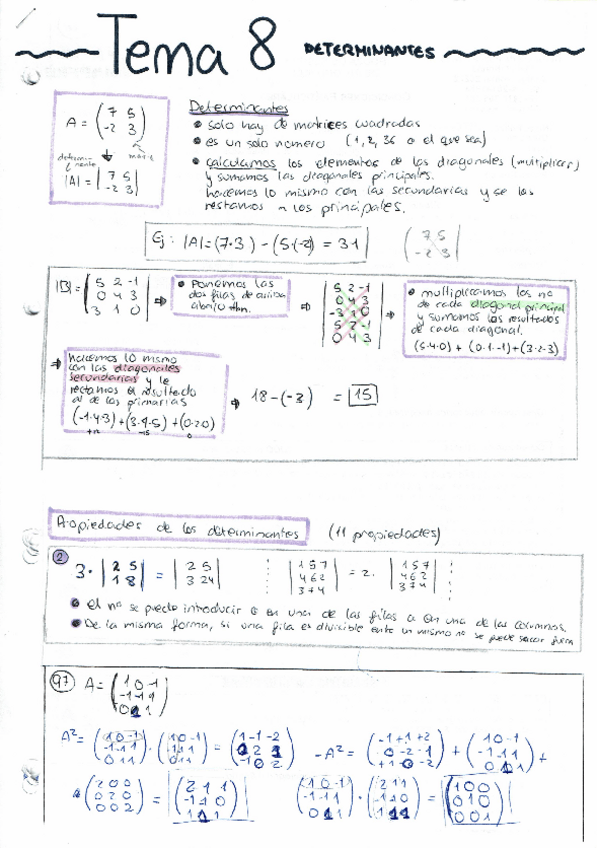 Tema 8 DETERMINANTES
A = (7 5
-2 3)
|A| = |7 5
-2 3|
Determinantes
• solo hay de matrices cuadradas
• es un solo numero (1, 2, 36 o el que sea)
• calculamos los elementos de las diagonales (multiplicar)
y sumamos las diagonales principales.
hacemos lo mismo con las secundarias y se las
restamos a las principales.
Ej: |A| = (7·3) - (5·(-2)) = 31
(7 5
-2 3)
|B| = |5 2 -1
0 4 3
3 1 0|
• ponemos las
dos filas de arriba
abajo tbn.
5 2 -1
0 4 3
-3 1 0
5 2 -1
0 4 3
• multiplicamos los no
de cada diagonal principal
y sumamos los resultados
de cada diagonal.
(5·4·0) + (0·1·-1) + (3·2·3)
hacemos lo mismo
con las diagonales
secundarias y le
restamos el resultado
al de las primarias
(-1·4·3) + (3·1·5) + (0·2·0)
18 - (-3) = 15
Propiedades de los determinantes (11 propiedades)
2
3 · |2 5
1 8| = |2 5
3 24|
|1 5 7
4 6 2
3 7 4| = 2 · |1 5 7
4 6 2
3 7 4|
• el no se puede introducir o en una de las filas o en una de las columnas.
• De la misma forma, si una fila es divisible ente un mismo no se puede sacar fuera
97 A = (1 0 -1
-1 1 1
0 1 1)
A² = (1 0 -1
-1 1 1
0 1 1) · (1 0 -1
-1 1 1
0 1 1) = (1 -1 -2
-2 2 3
-1 0 2
-A² = (-1 +1 +2
0 -2 -1
+1 0 -2) + (1 0 -1
-1 1 1
0 1 1) +
(2 0 0
0 2 0
0 0 2) = (2 1 1
-1 1 0
1 1 1)
(1 0 -1
-1 1 1
0 1 1) · (2 1 1
-1 1 0
1 1 1) = (1 0 0
0 1 0
0 0 1)